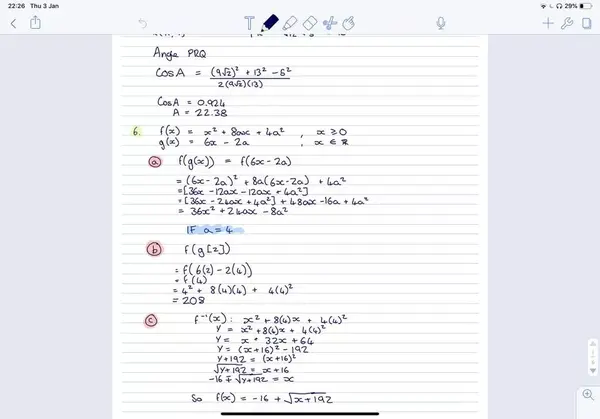 22:26 Thu 3 Jan
29%
Angle PRQ
CosA = (9√2)² + 13² - 5²
2(9√2)(13)
CosA = 0.924
A = 22.38
6. f(x) = x² + 8ax + 4a² , x ≥ 0
g(x) = 6x - 2a , x ∈ ℝ
a f(g(x)) = f(6x - 2a)
= (6x - 2a)² + 8a(6x - 2a) + 4a²
= [36x - 12ax - 12ax + 4a²]
= [36x - 24ax + 4a²] + 48ax - 16a + 4a²
= 36x² + 24ax - 8a²
IF a = 4
b f(g[2])
= f(6(2) - 2(4))
= f(4)
= 4² + 8(4)(4) + 4(4)²
= 208
c f⁻¹(x) : x² + 8(4)x + 4(4)²
y = x² + 8(4)x + 4(4)²
y = x + 32x + 64
y = (x+16)² - 192
y+192 = (x+16)²
√y+192 = x+16
-16 ∓ √y+192 = x
So f(x) = -16 + √x+192